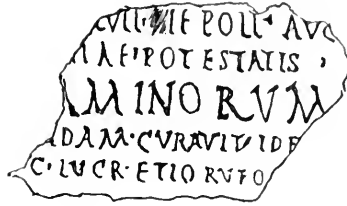 POLL · AVG
POTESTATIS ·
AMINORVM
DAM · CVRAVIT · IDE
C · LVCRETIO RVFO